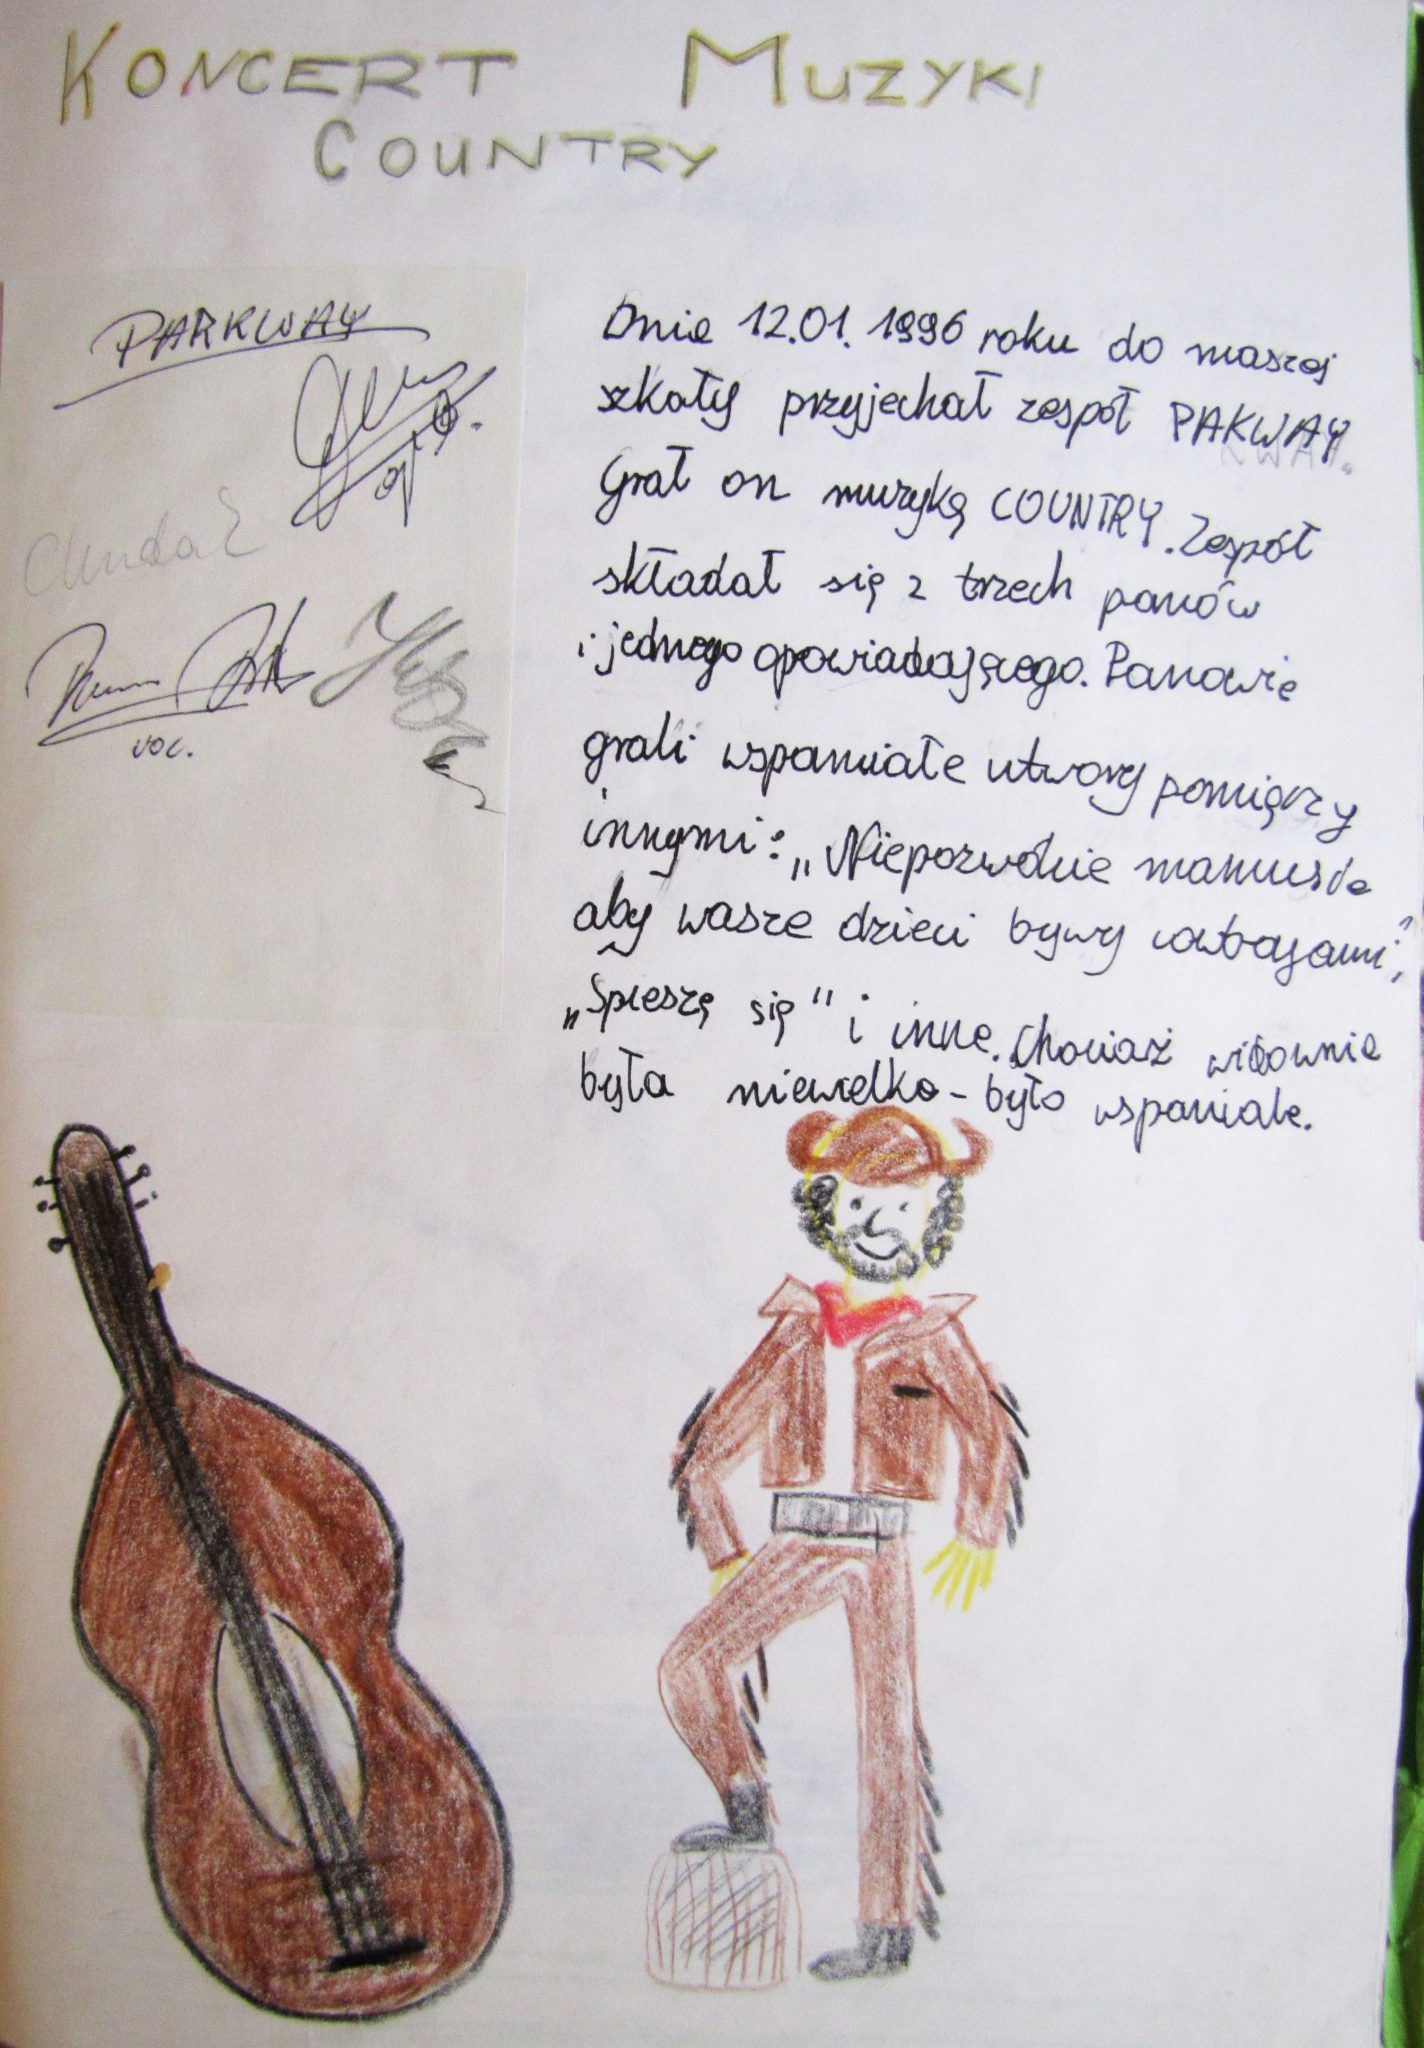 KONCERT MUZYKI
COUNTRY
PARKWAY
voc.
Dnia 12.01.1996 roku do naszej
szkoły przyjechał zespół PAKWAY.
Grał on muzykę COUNTRY. Zespół
składał się z trzech panów
i jednego opowiadającego. Panowie
grali wspaniałe utwory pomięczy
innymi: „Niepozwólcie mamusie
aby wasze dzieci bywy cowboyami",
„Spieszę się" i inne. Chociaż widownia
była niewielka - było wspaniale.